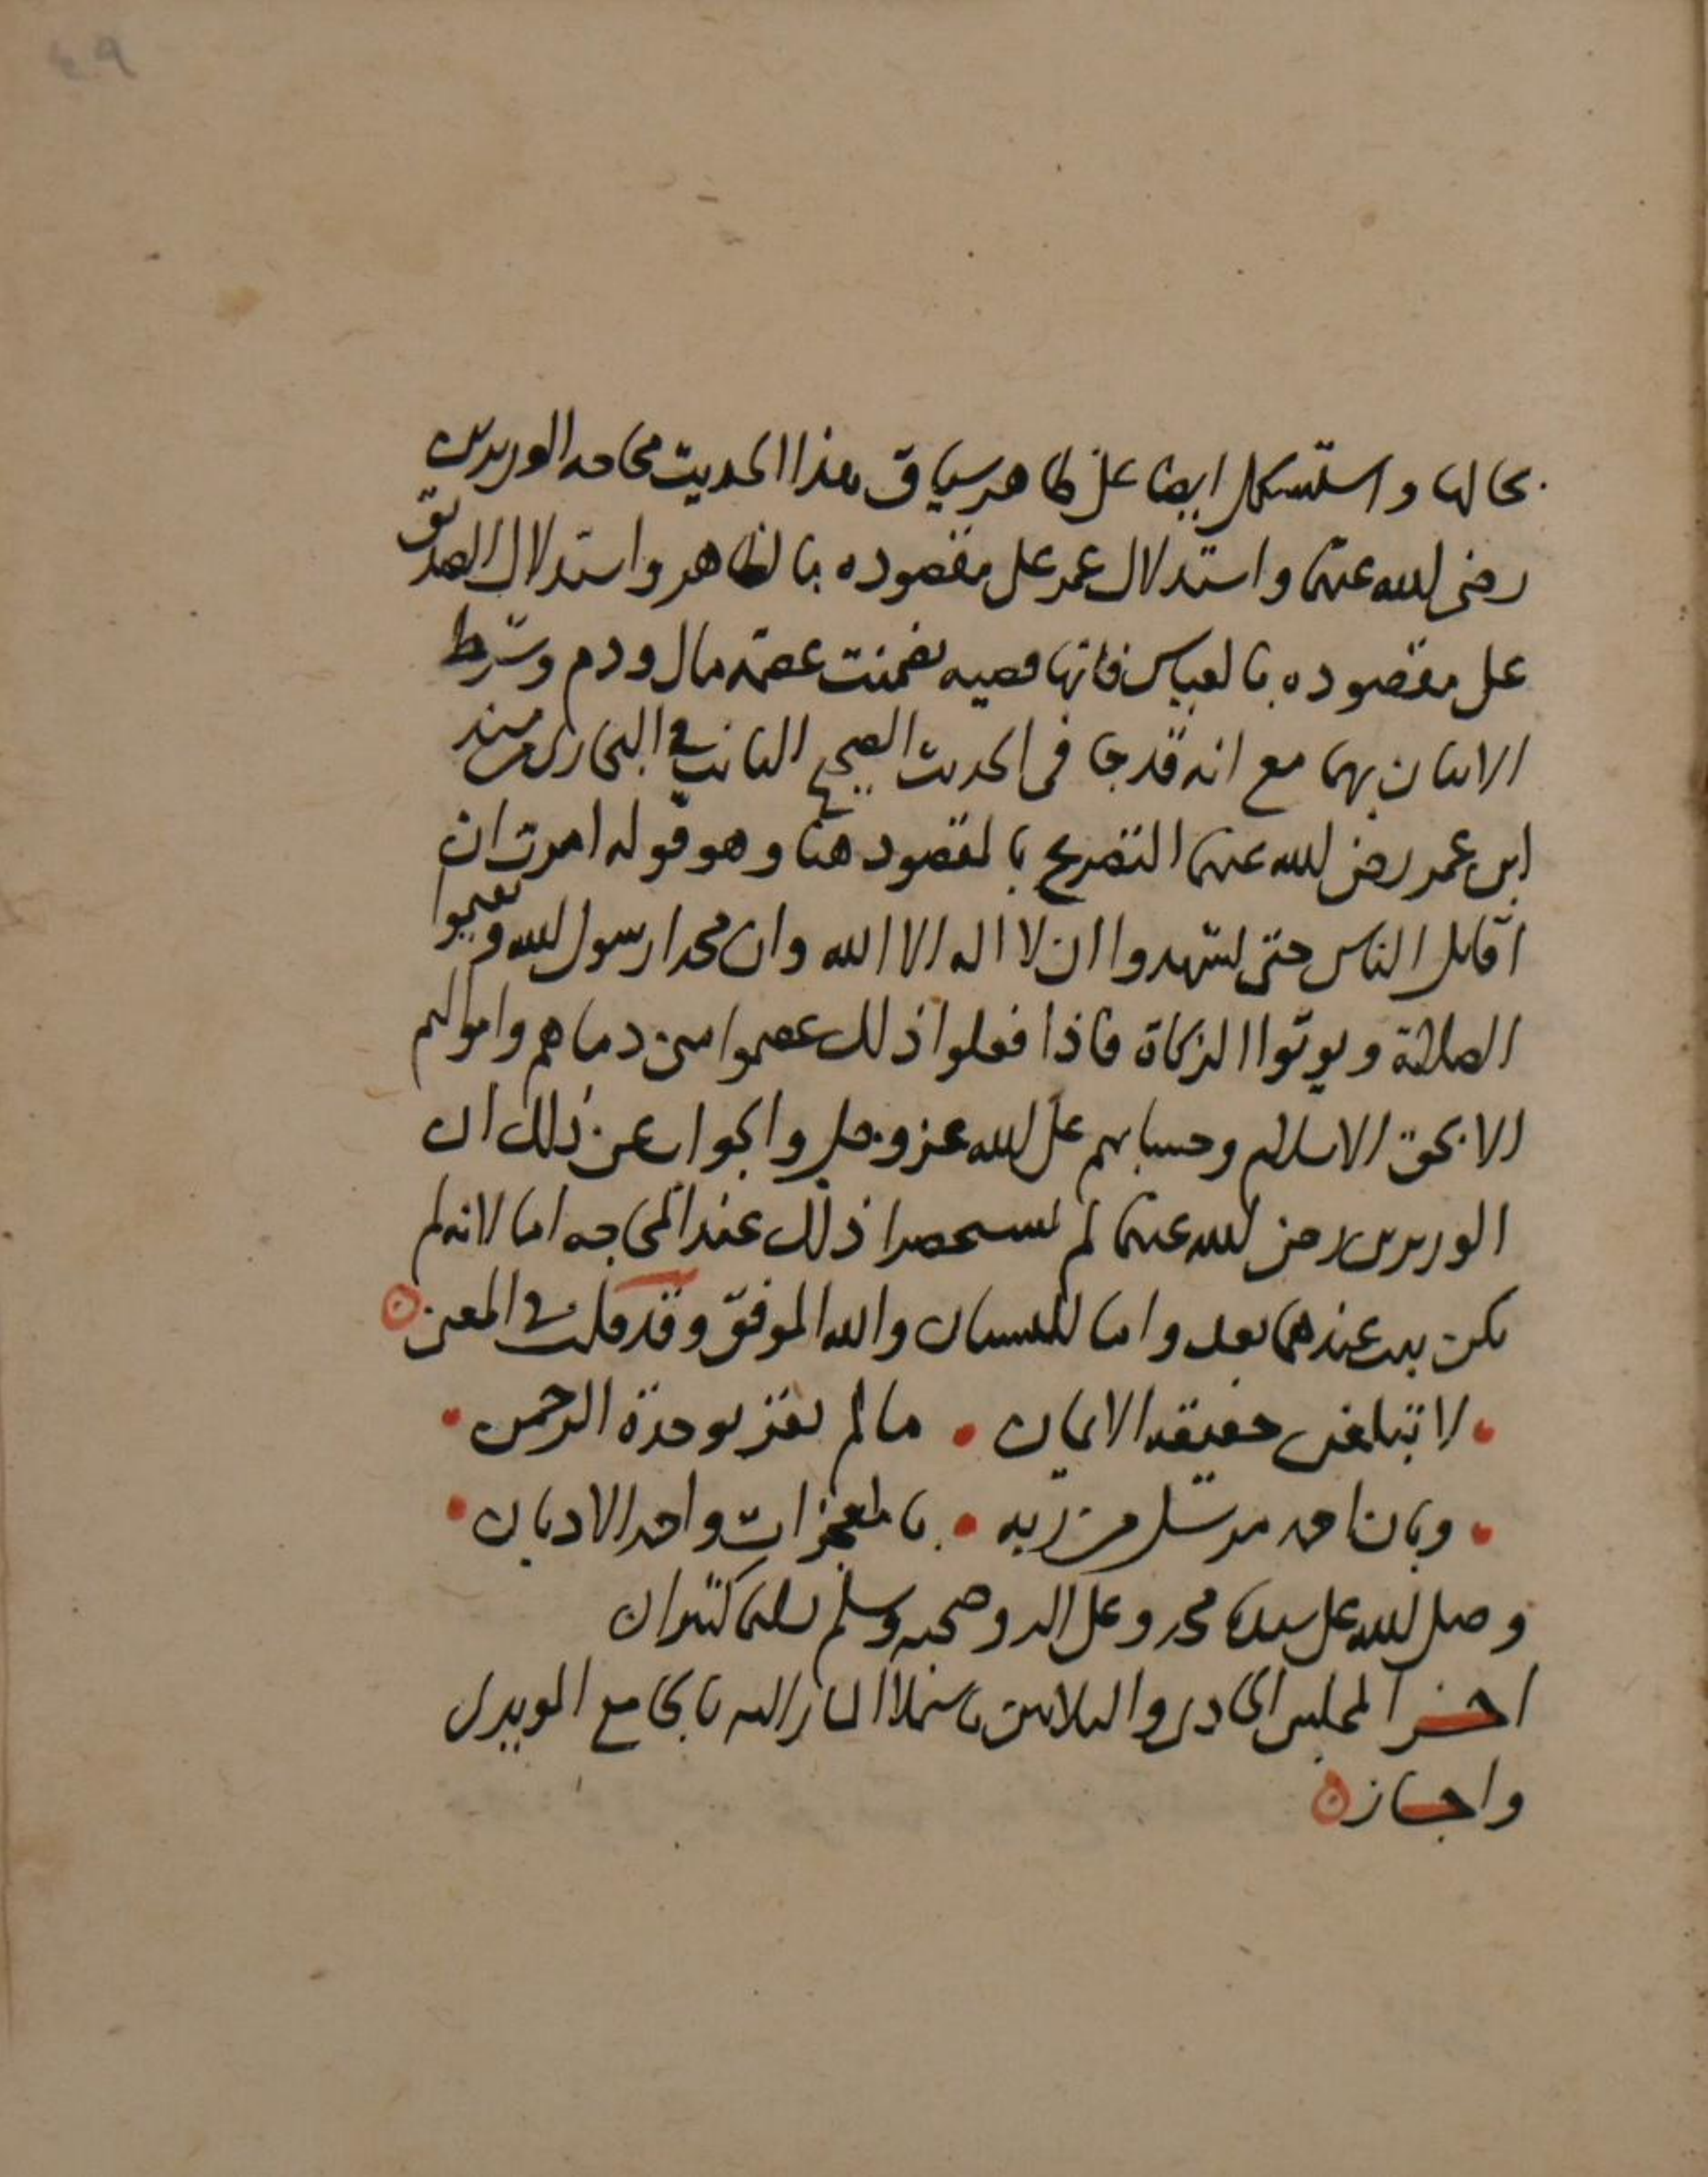 بحالها واستشكل ايضا على ظاهر سياق هذا الحديث محاجه الوزيرين
رضى الله عنهما واستدلال عمر على مقصوده بالظاهر واستدلال الصديق
على مقصوده بالقياس فانها قضيه تضمنت عصمة مال ودم وشرط
الاتيان بهما مع انه قد جا فى الحديث الصحيح الثابت في البخارى من مسند
ابن عمر رضى الله عنهما التصريح بالمقصود هنا وهو قوله امرت ان
اقاتل الناس حتى يشهدوا ان لا اله الا الله وان محمدا رسول الله ويقيموا
الصلاة ويوتوا الزكاة فاذا فعلوا ذلك عصموا منى دماهم واموالهم
الا بحق الاسلام وحسابهم على الله عز وجل والجواب عن ذلك ان
الوزيرين رضى الله عنهما لم يستحضرا ذلك عند المحاجه اما لانه لم
يكن يثبت عندهما بعد واما للنسيان والله الموفق وقد قلت في المعنى
لا تبلغن حقيقة الايمان • ما لم تقر بوحدة الرحمن •
• وبان احمد مرسل من ربه • بالمعجزات واحد الاديان •
وصلى الله على سيدنا محمد وعلى اله وصحبه وسلم تسليما كثيرا ن
اخر المجلس الحادى والثلاثين بالجامع المويدى
واجاز